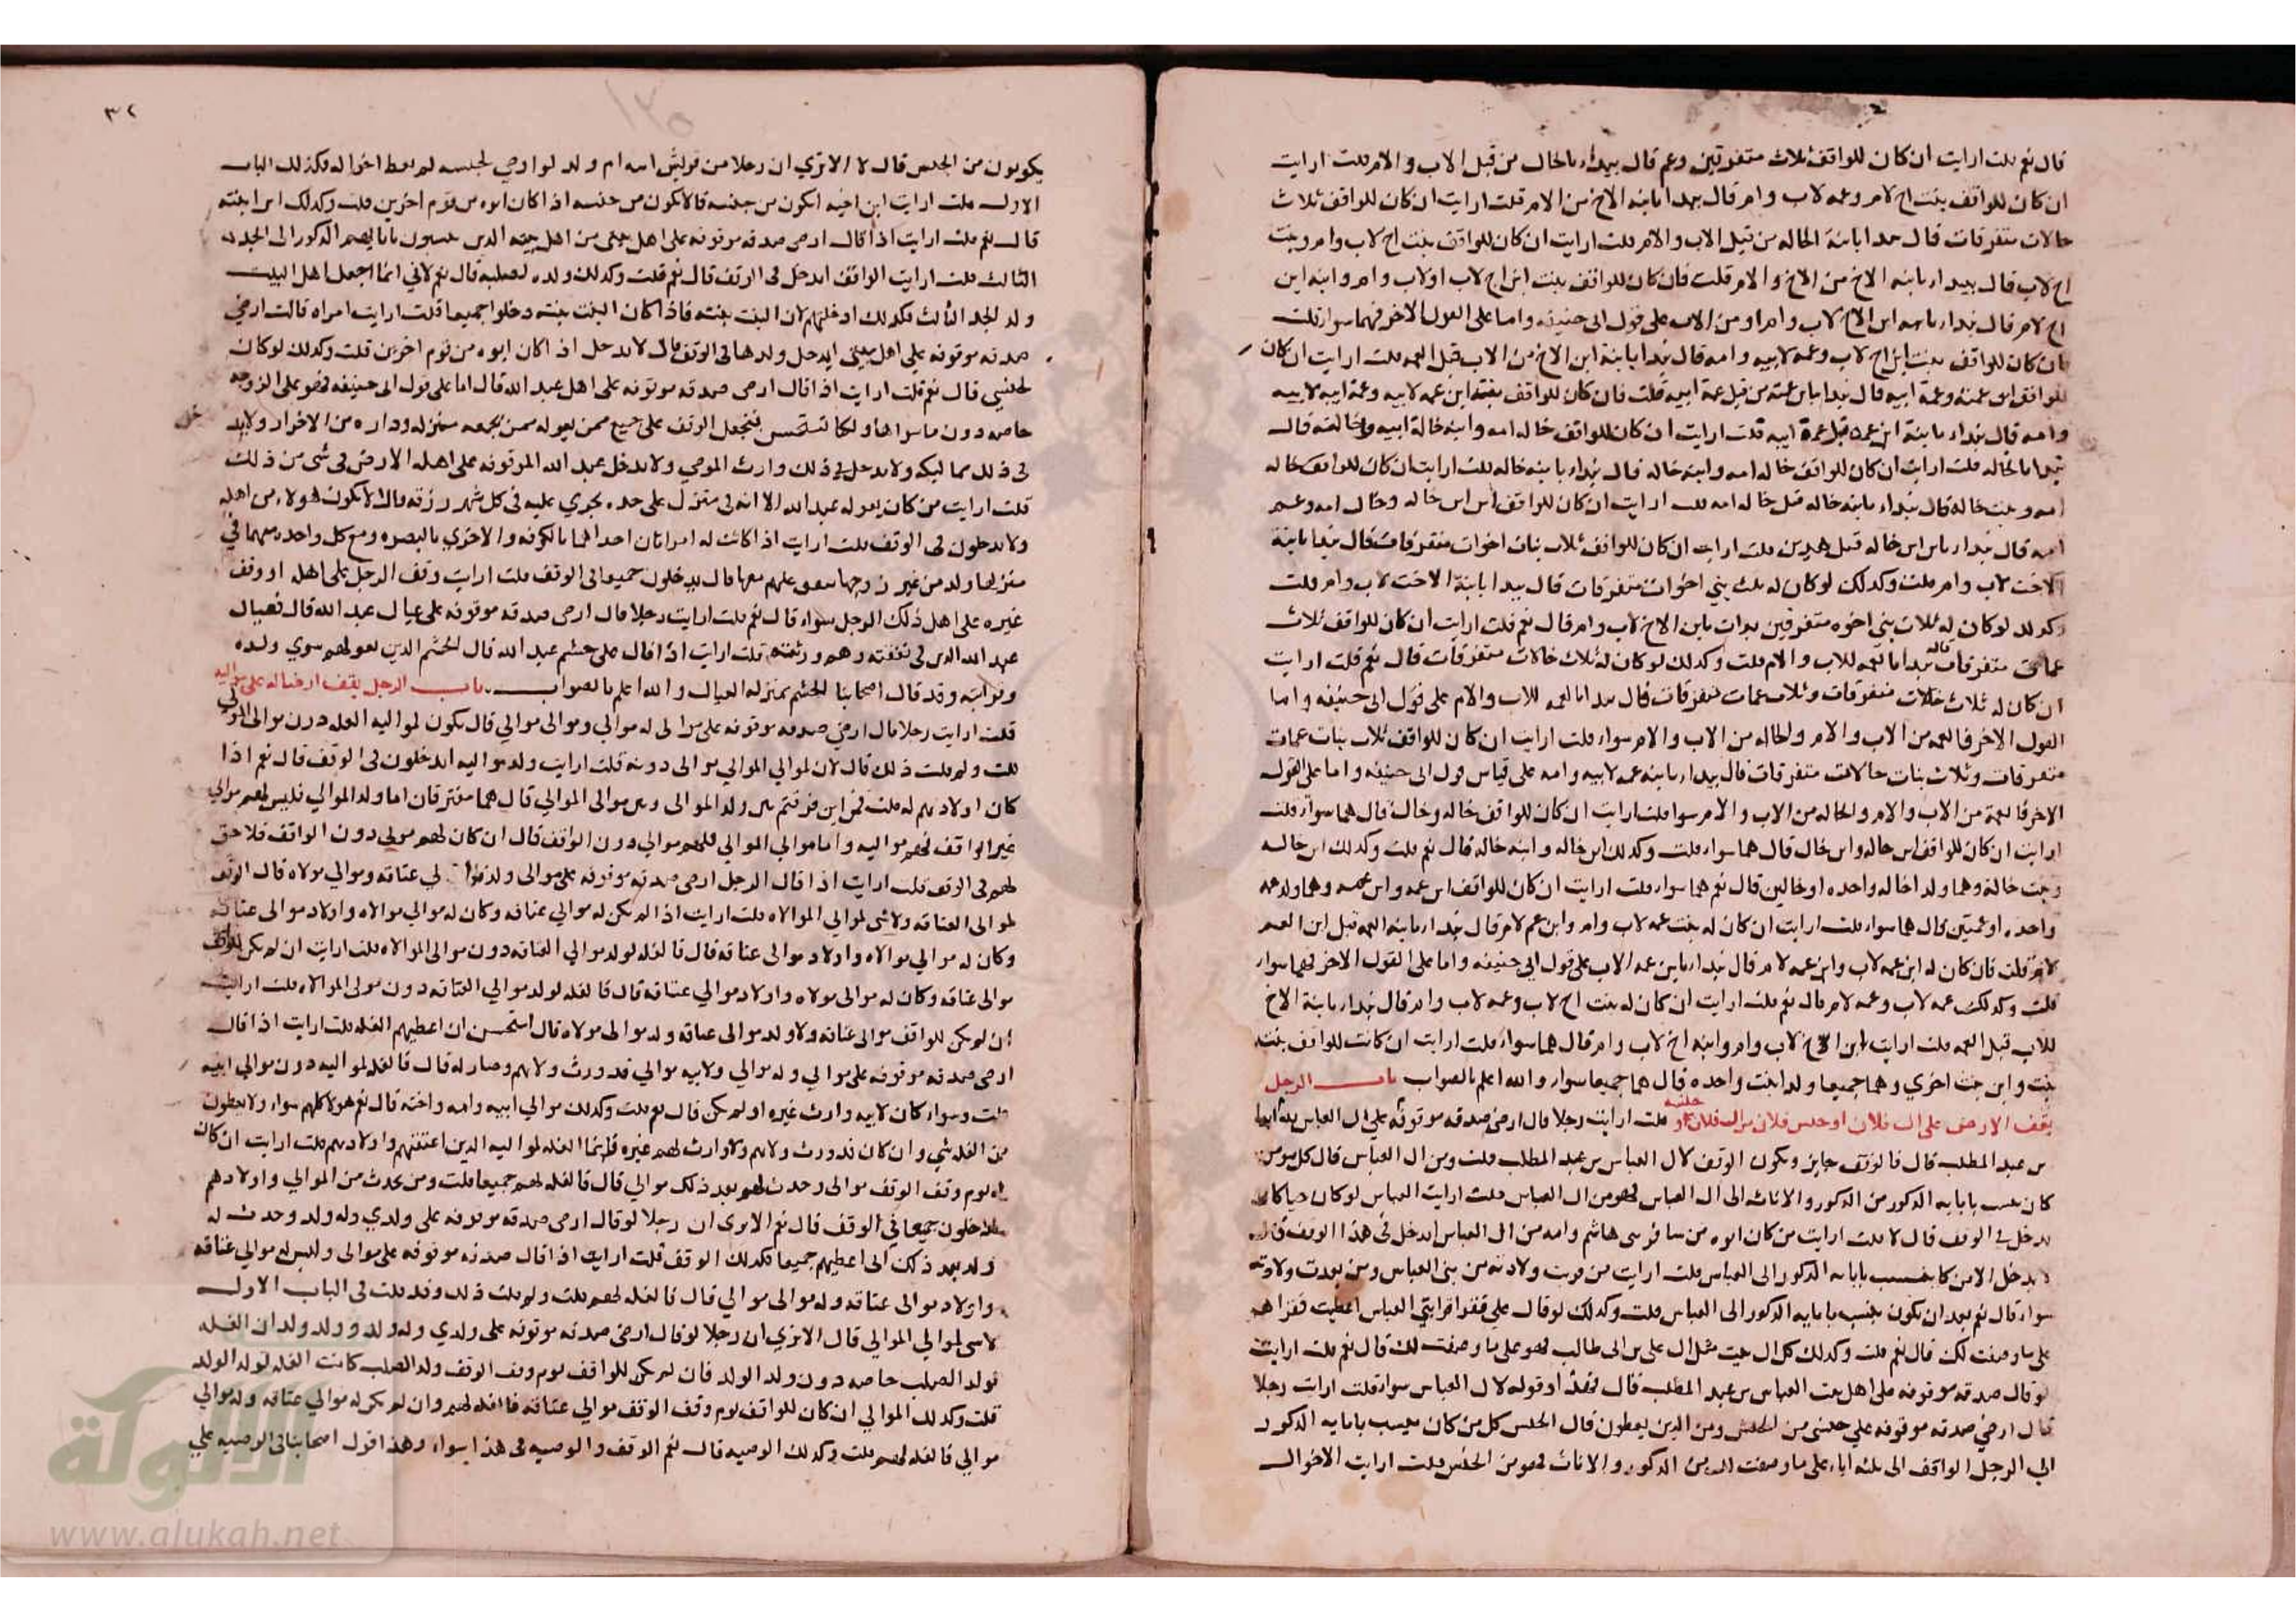 قال نعم قلت ارايت ان كان للواقف ثلاث متفرقين وعم قال يبداء بالخال من قبل الاب والام قلت ارايت
ان كان للواقف بنت اخ لام وعمه لاب وام قال يبدا بابنه الاخ من الام قلت ارايت ان كان للواقف ثلاث
خالات متفرقات قال يبدا بابنة الخاله من قبل الاب والام قلت ارايت ان كان للواقف بنت اخ لاب وام وبنت
اخ لاب قال يبدا بابنه الاخ من الاخ والام قلت فان كان للواقف بنت ابن اخ لاب او لاب وام وابنه ابن
اخ لام قال يبدا بابنه ابن الاخ لاب وام او من الاب على قول ابي حنيفه واما على القول الاخر فهما سواء قلت
فان كان للواقف بنت ابن اخ لاب وعمه لابيه وامه قال يبدا بابنة ابن الاخ من الاب قبل العمه قلت ارايت ان كان
للواقف ابن عمته وعمة ابيه قال يبدا بابن عمته من قبل عمة ابيه قلت فان كان للواقف بنته ابن عمه لابيه وعمة ابيه لابيه
وامه قال يبداء بابنة ابن عمه قبل عمة ابيه قلت ارايت ان كان للواقف خاله امه وابنه خالة ابيه وخالته قال
يبدا بالخاله قلت ارايت ان كان للواقف خاله امه وابنه خاله قال يبداء بابنه خاله قلت ارايت ان كان للواقف خاله
امه وبنت خالة قال يبداء بابنه خاله قبل خاله امه قلت ارايت ان كان للواقف ابن ابن خاله وخال امه وعم
امه قال يبداء بابن ابن خاله قبل هذين قلت ارايت ان كان للواقف ثلاث بنات اخوات متفرقات قال يبدا بابنة
الاخت لاب وام قلت وكذلك لو كان له ثلث بني اخوات متفرقات قال يبدا بابنة الاخت لاب وام قلت
وكذلك لو كان له ثلاث بني اخوه متفرقين بدات بابن الاخ لاب وام قال نعم قلت ارايت ان كان للواقف ثلاث
عمات متفرقات قال يبدا بالعمه للاب والام قلت وكذلك لو كان له ثلاث خالات متفرقات قال نعم قلت ارايت
ان كان له ثلاث خالات متفرقات وثلاث عمات متفرقات قال يبدا بالعمه للاب والام على قول ابي حنيفه واما
القول الاخر فالعمه من الاب والام والخاله من الاب والام سواء قلت ارايت ان كان للواقف ثلاث بنات عمات
متفرقات وثلاث بنات خالات متفرقات قال يبداء بابنه عمه لابيه وامه على قياس قول ابي حنيفه واما على القول
الاخر فالعمة من الاب والام والخاله من الاب والام سوا قلت ارايت ان كان للواقف خاله وخال قال هما سواء قلت
ارايت ان كان للواقف ابن خاله وابن خال قال هما سواء قلت وكذلك ابن خاله وابنه خاله قال نعم قلت وكذلك ابن خاله
وبنت خالة وهما ولدا خاله واحده او خالين قال نعم هما سواء قلت ارايت ان كان للواقف ابن عمه وابن عمه وهما ولد عمه
واحده او عمتين قال هما سواء قلت ارايت ان كان له بنت عمه لاب وام وابن عم لام قال يبداء بابنه العمه قبل ابن العم
لام قلت فان كان له ابن عمه لاب وابن عمه لام قال يبداء بابن عمه الاب على قول ابي حنيفه واما على القول الاخر فهما سواء
قلت وكذلك عمه لاب وعمه لام قال نعم قلت ارايت ان كان له بنت اخ لاب وعمه لاب وام قال يبداء بابنة الاخ
للاب قبل العمه قلت ارايت ابن الاخ لاب وام وابنه اخ لاب وام قال هما سواء قلت ارايت ان كانت للواقف بنت
بنت وابن بنت اخري وهما جميعا ولد ابنت واحده قال هما جميعا سواء والله اعلم بالصواب باب الرجل
يقف الارض على ال فلان او جنس فلان قلت ارايت رجلا قال ارضي صدقه موقوفه على ال العباس
بن عبد المطلب قال فالوقف جايز ويكون الوقف لال العباس بن عبد المطلب قلت ومن ال العباس قال كل من
كان ينسب بابايه الذكور من الذكور والاناث الى ال العباس فهو من ال العباس قلت ارايت العباس لو كان حيا كان
يدخل في الوقف قال لا قلت ارايت من كان ابوه من سائر بني هاشم وامه من ال العباس ايدخل في هذا الوقف قال
لا يدخل الا من كان ينسب بابايه الذكور الى العباس قلت ارايت من قربت ولادته من بني العباس ومن بعدت ولادته
سواء قال نعم بعد ان يكون ينسب بابايه الذكور الى العباس قلت وكذلك لو قال على فقرا قرابتي العباس اعطيت فقراهم
على ما وصفت لك قال نعم قلت وكذلك كل ال بيت مثل ال علي بن ابي طالب فهو على ما وصفت لك قال نعم قلت ارايت
لو قال صدقه موقوفه على اهل بيت العباس بن عبد المطلب قال فهذا وقوله لال العباس سواء قلت ارايت رجلا
قال ارضي صدقه موقوفه على جنسي من الجنس ومن الذين يعطون قال الجنس كل من كان ينسب بابايه الذكور
الي الرجل الواقف الى ثلثه اباء على ما وصفت لك من الذكور والاناث فهو من الجنس قلت ارايت الاخوال
٣٢
يكونون من الجنس قال لا الا تري ان رجلا من قريش امه ام ولد لو اوصى لجنسه لم يعط اخواله فكذلك الباب
الاول قلت ارايت ابن اخيه ايكون من جنسه قال لا يكون من جنسه اذا كان ابوه من قوم اخرين قلت وكذلك ابن ابنته
قال نعم قلت ارايت اذا قال ارضي صدقه موقوفه على اهل بيتي من اهل بيته الذين ينسبون بابايهم الذكور الى الجد
الثالث قلت ارايت الواقف ايدخل في الوقف قال نعم قلت وكذلك ولده لصلبه قال نعم لاني انما اجعل اهل البيت
ولد الجد الثالث فكذلك ادخلتهم لان البيت بيته فاذا كان البيت بيته دخلوا جميعا قلت ارايت امراه قالت ارضي
صدقه موقوفه على اهل بيتي ايدخل ولدها في الوقف قال لا يدخل اذا كان ابوه من قوم اخرين قلت وكذلك لو كان
لجنسي قال نعم قلت ارايت اذا قال ارضي صدقه موقوفه على اهل عبد الله قال اما على قول ابي حنيفه فهو على الزوجه
خاصه دون ما سواها ولكنا نستحسن فنجعل الوقف على جميع من يعوله ممن يجمعه منزله وداره من الاحرار ولا يدخل
في ذلك مماليكه ولا يدخل في ذلك وارث الموصي ولا يدخل عبد الله الموقوفه على اهله الارض في شي من ذلك
قلت ارايت من كان يعوله عبد الله الا انه في منزل على حده يجري عليه في كل شهر رزقه قال لا يكون هولاء من اهله
ولا يدخلون في الوقف قلت ارايت اذا كانت له امراتان احداهما بالكوفه والاخري بالبصره ومع كل واحده منهما في
منزلها ولد من غير زوجها ينفق عليهم معها قال يدخلون جميعا في الوقف قلت ارايت وقف الرجل على اهله او وقف
غيره على اهل ذلك الرجل سواء قال نعم قلت ارايت رجلا قال ارضي صدقه موقوفه على عيال عبد الله قال فعيال
عبد الله الذين في نفقته قلت ارايت اذا قال على حشم عبد الله قال الحشم الذين يعولهم سوي ولده
وقرابته وقد قال اصحابنا الحشم بمنزله العيال والله اعلم بالصواب باب الرجل يقف ارضا له على مواليه
قلت ارايت رجلا قال ارضي صدقه موقوفه على موالى له موالي وموالى موالي قال يكون لمواليه الغله دون موالى الموالي
قلت ولم قلت ذلك قال لان لموالي الموالي موالى دونه قلت ارايت ولد مواليه ايدخلون في الوقف قال نعم اذا
كان اولادهم له قلت فمن اين فرقتم بين ولد الموالى وبين موالى الموالي قال هما مفترقان اما ولد الموالي فليس لهم موالي
غير الواقف فهم مواليه واما موالي الموالي فلهم موالي دون الواقف قال ان كان لهم مولي دون الواقف فلا حق
لهم في الوقف قلت ارايت اذا قال الرجل ارضي صدقه موقوفه على موالى وله موالي عتاقه وموالي مولاه قال الوقف
لموالى العتاقه ولا شي لموالي الموالاه قلت ارايت اذا لم يكن له موالي عتاقه وكان له موالي مولاه واولاد موالى عتاقه
وكان له موالي موالاه واولاد موالى عتاقه قال فالغله لولد موالي العتاقه دون موالى الموالاه قلت ارايت ان لم يكن للواقف
موالى عتاقه وكان له موالى مولاه واولاد موالي عتاقه قال فالغله لولد موالي العتاقه دون مولى الموالاه قلت ارايت
ان لم يكن للواقف موالى عتاقه ولا ولد موالى عتاقه وله موالى مولاه قال استحسن ان اعطيهم الغله قلت ارايت اذا قال
ارضي صدقه موقوفه على موالي وله موالي ولابيه موالي قد ورث ولاهم وصار له قال فالغله لمواليه دون موالي ابيه
قلت وسواء كان لابيه وارث غيره او لم يكن قال نعم قلت وكذلك موالي ابيه وامه واخته قال نعم هولا كلهم سواء ولا يعطون
من الغله شي وان كان قد ورث ولاهم ولا وارث لهم غيره فانما الغله لمواليه الذين اعتقهم واولادهم قلت ارايت ان كان
له يوم وقف الوقف موالى وحدث لهم بعد ذلك موالي قال فالغله لهم جميعا قلت ومن يحدث من الموالي واولادهم
يدخلون جميعا في الوقف قال نعم الا تري ان رجلا لو قال ارضي صدقه موقوفه على ولدي وله ولد وحدث له
ولد بعد ذلك اني اعطيهم جميعا فكذلك الوقف قلت ارايت اذا قال صدقه موقوفه على موالى وليس له موالي عتاقه
واولاد موالى عتاقه وله موالى موالي قال فالغله لهم قلت ولم قلت ذلك وقد قلت في الباب الاول
لا شي لموالي الموالي قال الا تري ان رجلا لو قال ارضي صدقه موقوفه على ولدي وله ولد وولد ولد ان الغله
لولد الصلب خاصه دون ولد الولد فان لم يكن للواقف يوم وقف الوقف ولد الصلب كانت الغله لولد الولد
قلت وكذلك الموالي ان كان للواقف يوم وقف الوقف موالي عتاقه فالغله لهم وان لم يكن له موالي عتاقه وله موالي
موالي فالغله لهم قلت وكذلك الوصيه قال نعم الوقف والوصيه في هذا سواء وهذا قول اصحابنا في الوصيه علي
الألوكة
www.alukah.net